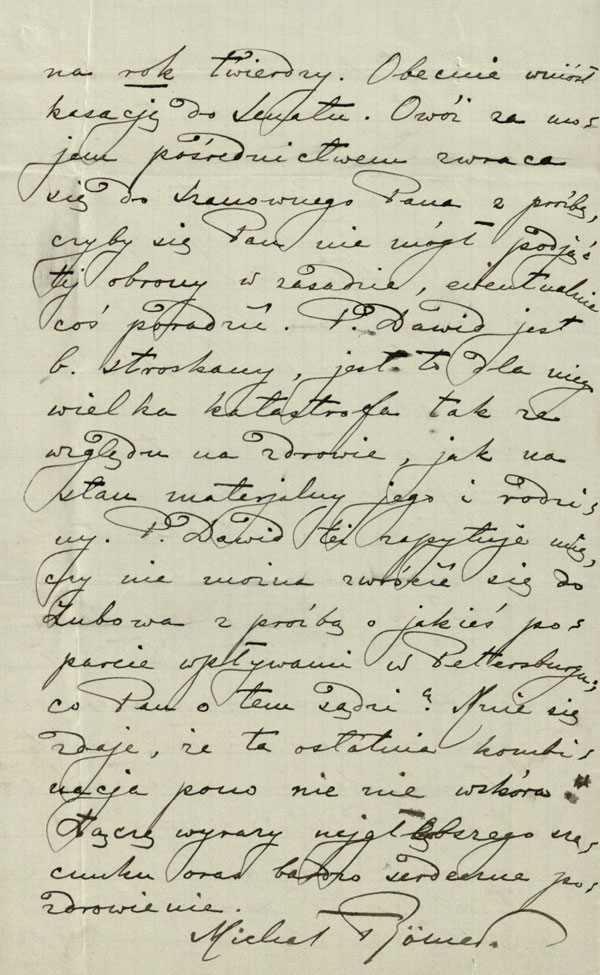 na rok twierdzy. Obecnie wniósł
kasację do Senatu. Owóż za mo-
jem pośrednictwem zwraca
się do Szanownego Pana z prośbą,
czyby się Pan nie mógł podjąć
tej obrony w zasadzie, ewentualnie
coś poradzić. P. Dawid jest
b. stroskany, jest to dla niego
wielka katastrofa tak ze
względu na zdrowie, jak na
stan materjalny jego i rodzi-
ny. P. Dawid też zapytuje mię,
czy nie można zwrócić się do
Zubowa z prośbą o jakieś po-
parcie wpływami w Pettersburgu;
co Pan o tem sądzi? Mnie się
zdaje, że ta ostatnia kombi-
nacja pono nic nie wskóra.
Łączę wyrazy najgłębszego sza-
cunku oraz bardzo serdeczne po-
zdrowienie.
Michał Römer.